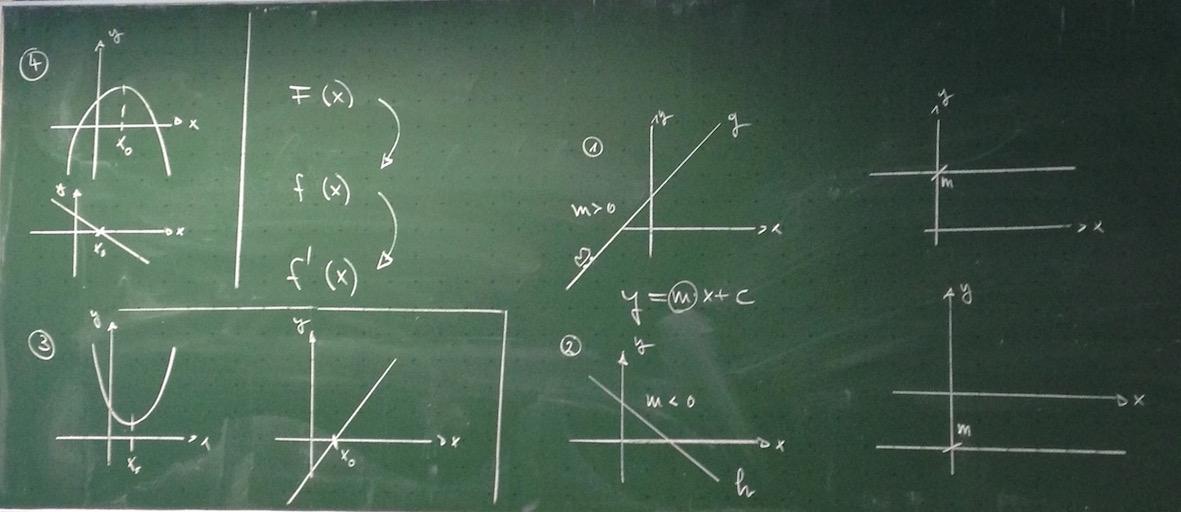 ④
y
x
x₀
y
x
x₀
F (x)
f (x)
f' (x)
①
y
g
m>0
x
y = m·x + c
y
m
x
③
y
x
x₀
y
x
x₀
②
y
m < 0
x
h
y
x
m